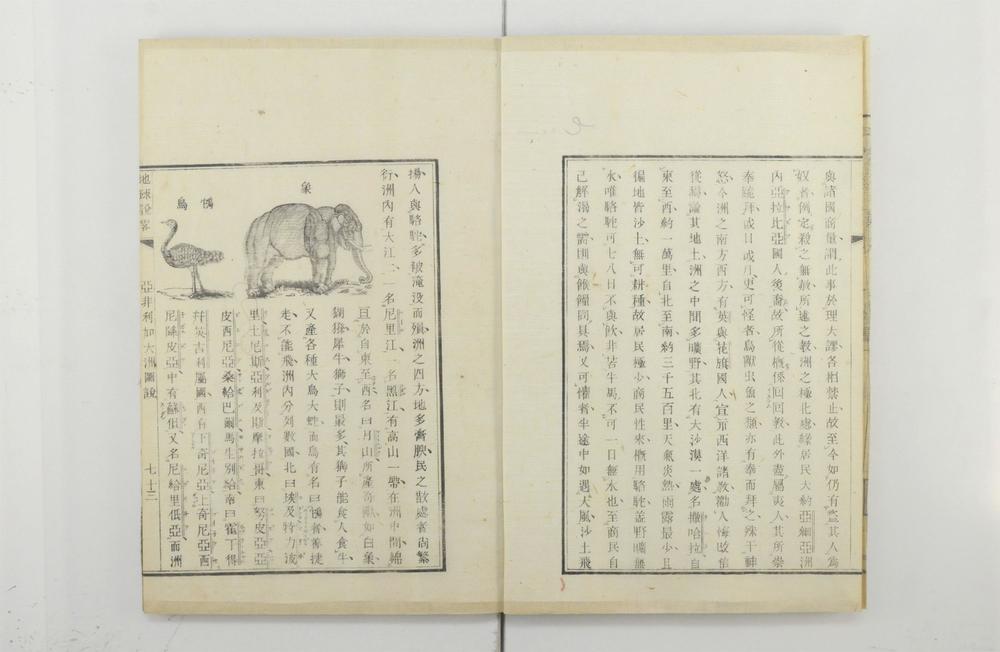 與諸國商量謂此事於理大謬各相禁止故至今如仍有盜其人爲
奴者例定殺之無赦所述之敎洲之極北處緣居民大約亞細亞洲
內亞拉比亞國人後裔故所從槪係回回敎此外盡屬夷人其所崇
奉隨拜或日或月更可怪者鳥獸虫魚之類亦有奉而拜之殊干神
怒今洲之南方西方有英與花旗國人宣示西洋諸敎勸人悔改信
從
其地土洲之中間多曠野其北有大沙漠一處名撒哈拉自
東至西約一萬里自北至南約三千五百里天氣炎熱雨露最少且
徧地皆沙土無可耕種故居民極少商民性來槪用駱駝盖野曠無
水唯駱駝可七八日不與飮非若牛馬不可一日無水也至商民自
己解渴之需則與餱餱同具焉又可懼者半途中如遇大風沙土飛
揚人與駱駝多被淹没而殞洲之四方地多膏腴民之散處者尙繁
衍洲內有大江二一名尼里江一名黑江有高山一帶在洲中間綿
亘於自東至西名曰月山所產奇獸如白象
猢猻犀牛獅子則最多其獅子能食人食牛
又產各種大鳥大蛇而鳥有名曰鴕者善捷
走不能飛洲內分列數國北曰埃及特力波
里土尼斯亞利及斯摩拉哥東曰努皮亞亞
皮西尼亞桑給巴爾馬生別給南曰霍丁得
幷英吉利屬國西有下奇尼亞上奇尼亞西
尼降皮亞中有蘇但又名尼給里低亞而洲
象
鴕鳥
地球說畧
亞非利加大洲圖說
七十三